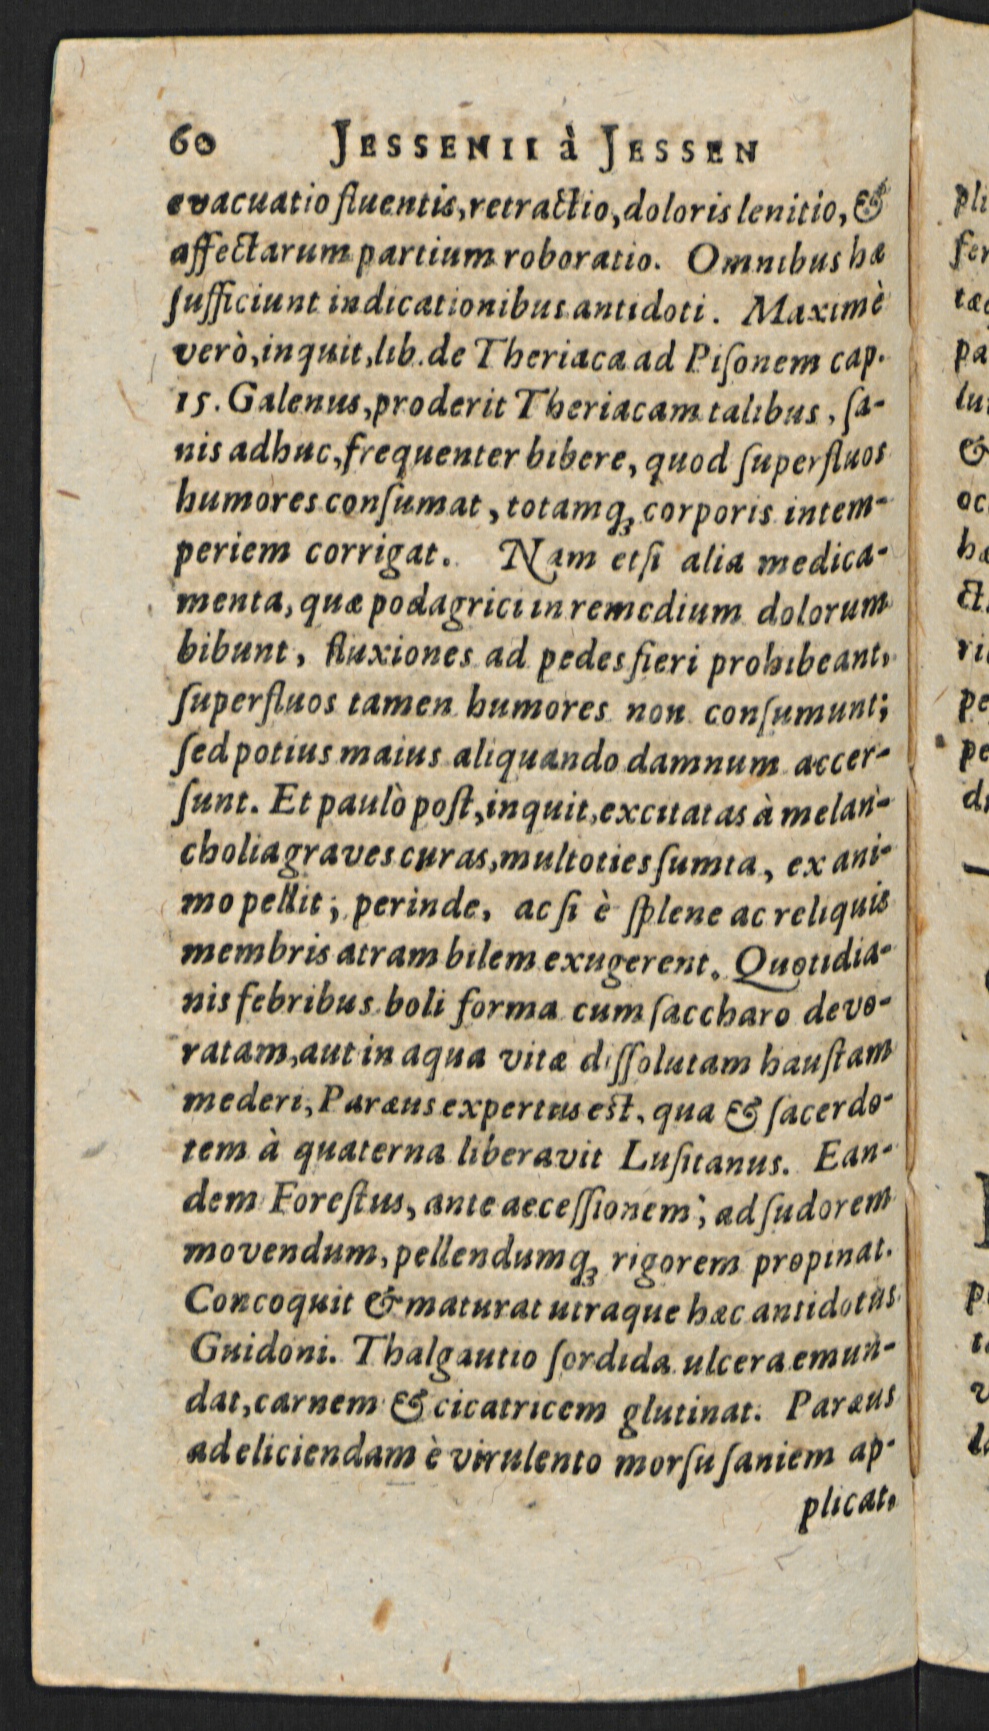 60 JESSENII à JESSEN
evacuatio fluentis, retractio, doloris lenitio, &
affectarum partium roboratio. Omnibus hæ
ſufficiunt indicationibus antidoti. Maximè
verò, inquit, lib. de Theriaca ad Piſonem cap.
15. Galenus, proderit Theriacam talibus, ſa-
nis adhuc, frequenter bibere, quod ſuperfluos
humores conſumat, totamq́ꝫ corporis intem-
periem corrigat. Nam etſi alia medica-
menta, quæ podagrici in remedium dolorum
bibunt, fluxiones ad pedes fieri prohibeant,
ſuperfluos tamen humores non conſumunt;
ſed potius maius aliquando damnum accer-
ſunt. Et paulò poſt, inquit, excitatas à melan-
cholia graves curas, multoties ſumta, ex ani-
mo pellit; perinde, ac ſi è ſplene ac reliquis
membris atram bilem exugerent. Quotidia-
nis febribus boli forma cum ſaccharo devo-
ratam, aut in aqua vitæ diſſolutam hauſtam
mederi, Paræus expertus est, qua & ſacerdo-
tem à quaterna liberavit Luſitanus. Ean-
dem Foreſtus, ante aeceſſionem; ad ſudorem
movendum, pellendumq́ꝫ rigorem propinat.
Concoquit & maturat utraque hæc antidotus
Guidoni. Thalgautio ſordida ulcera emun-
dat, carnem & cicatricem glutinat. Paræus
ad eliciendam è virulento morſu ſaniem ap-
plicat.
pli
fer
tæ
pa
lu
&
oc
hæ
ct
ri
pe
pe
d
p
t
v